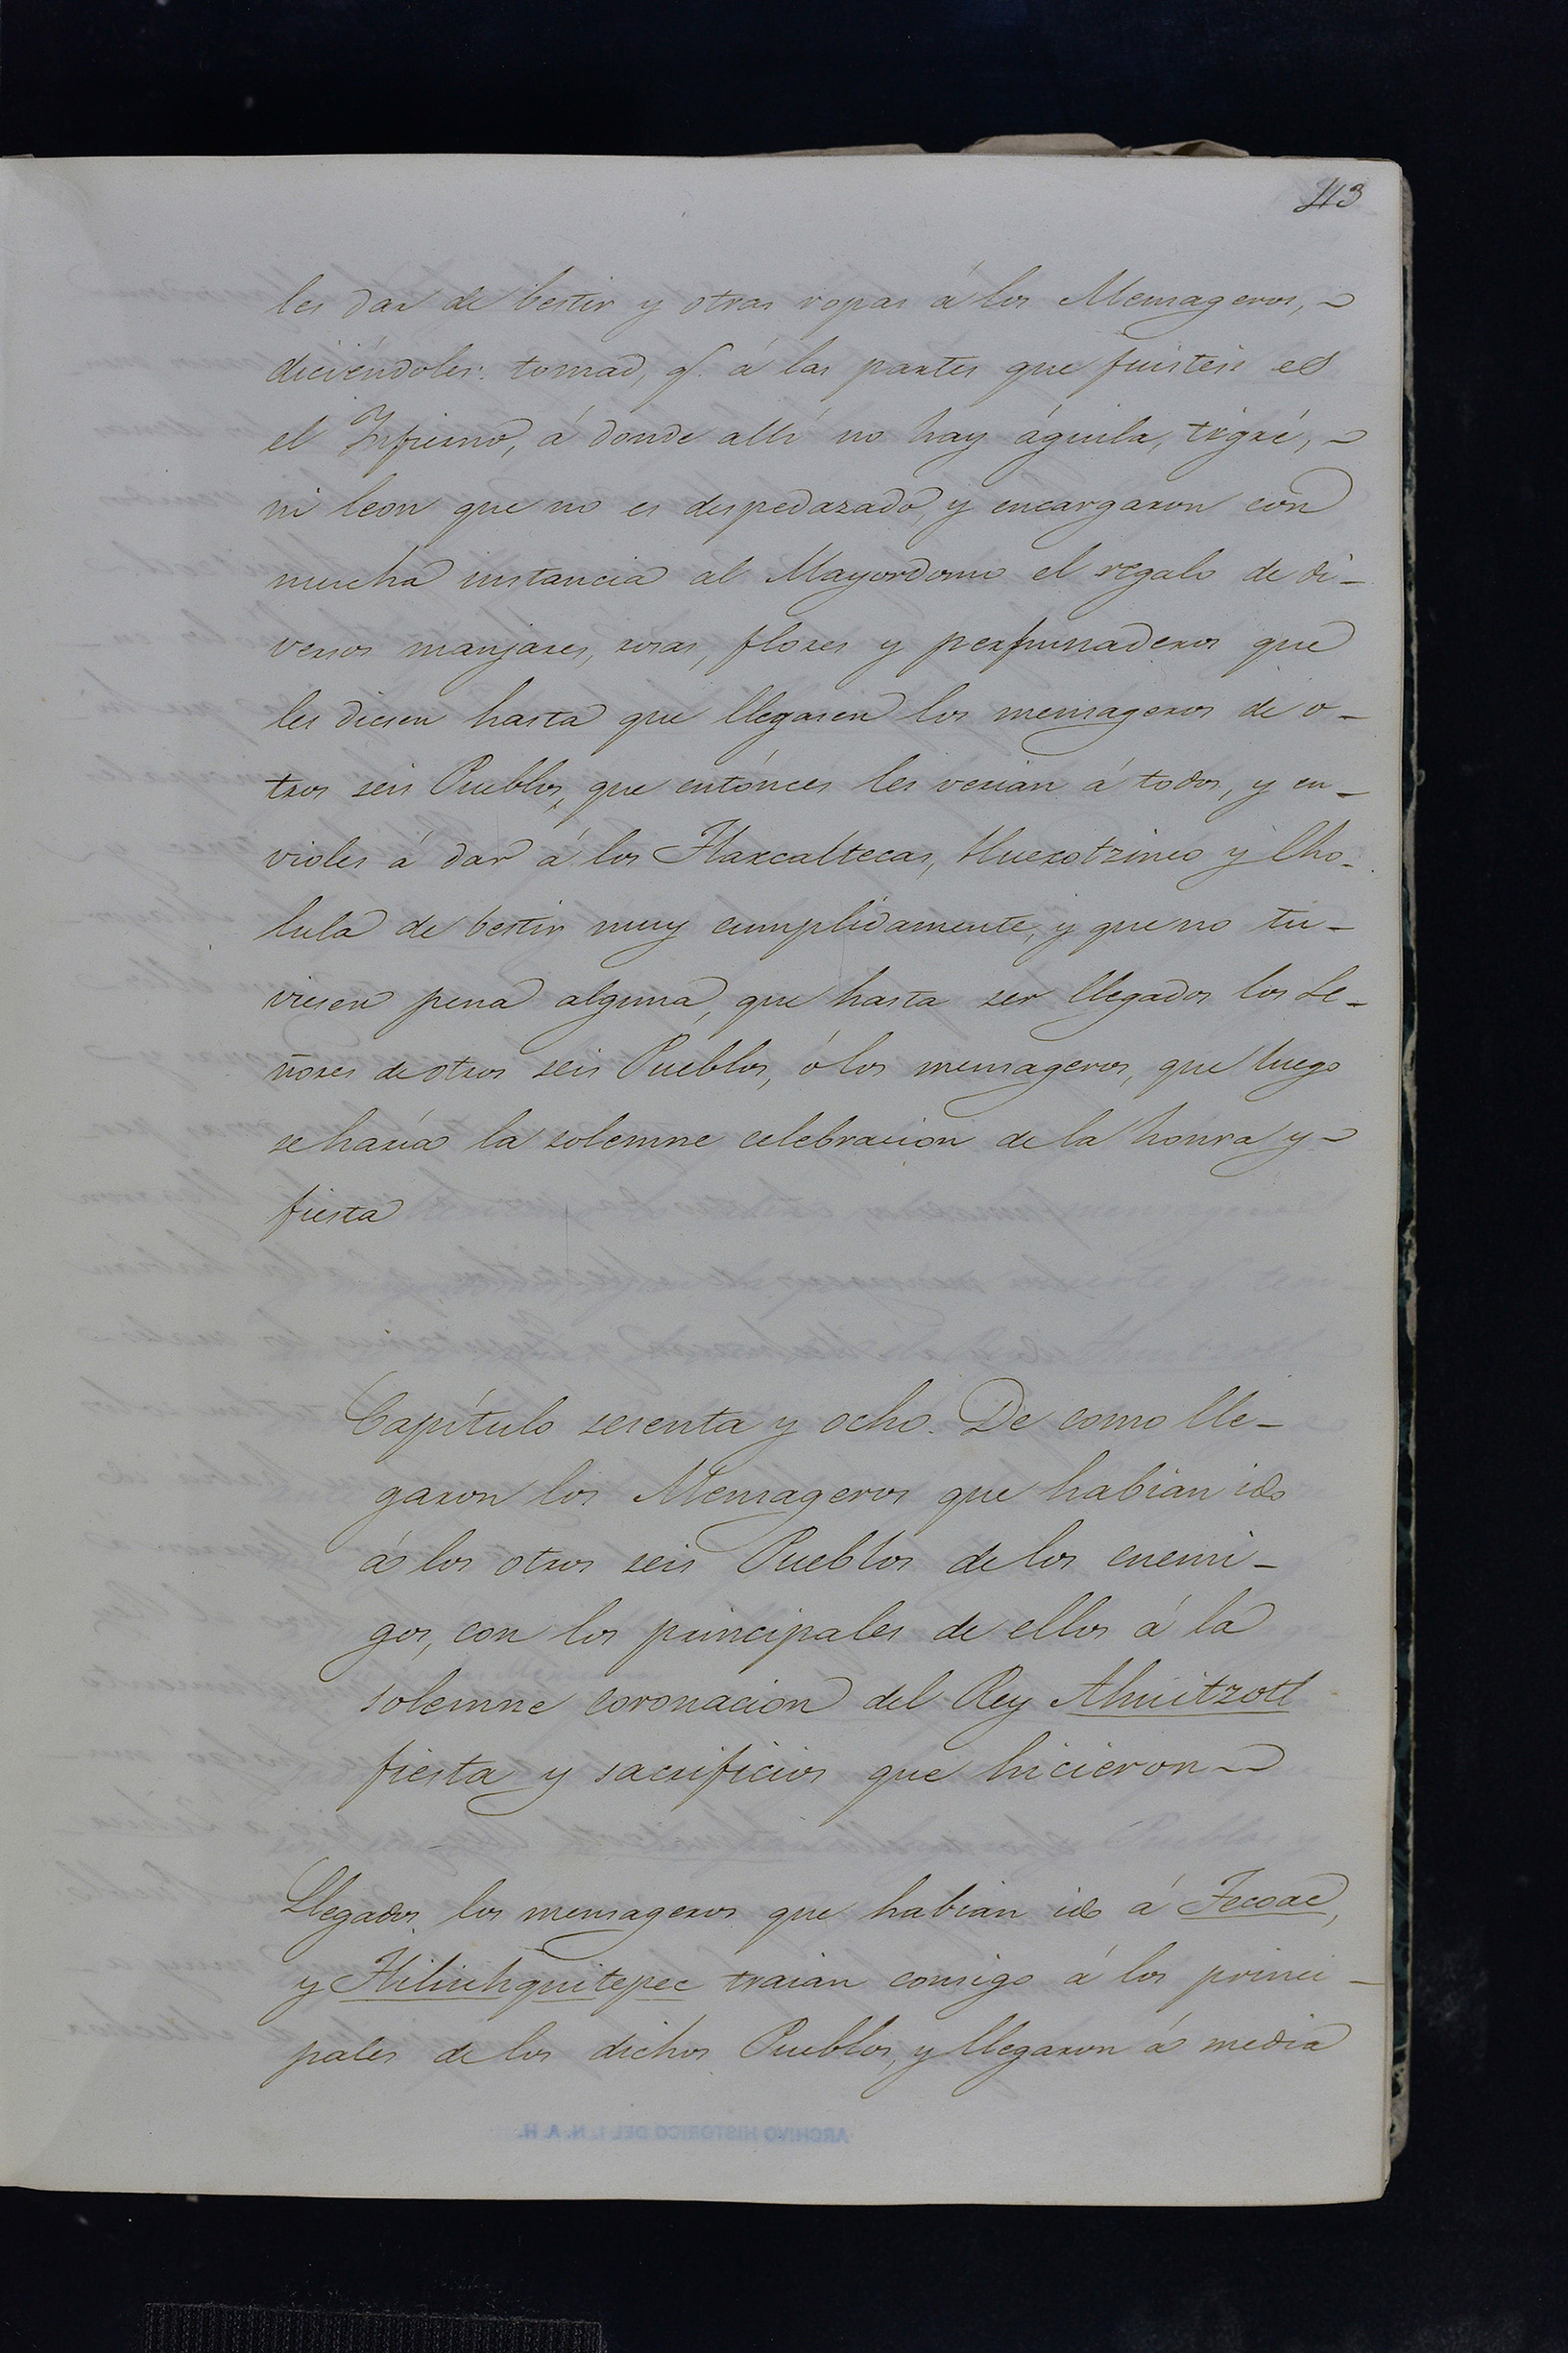 413
les dar de bestir y otras ropas á los Mensageros,
diciéndoles: tomad, q.^e á las partes que fuisteis es
el Infierno, á donde allí no hay águila, tigre,
ni leon que no es despedazado, y encargaron con
mucha instancia al Mayordomo el regalo de di-
versos manjares, rosas, flores y perfumaderos que
les diesen hasta que llegasen los mensageros de o-
tros seis Pueblos, que entónces les verian á todos, y en-
violes á dar á los Tlaxcaltecas, Huexotzinco y Cho-
lula de bestir muy cumplidamente, y que no tu-
viesen pena alguna, que hasta ser llegados los Se-
ñores de otros seis Pueblos, ó los mensageros, que luego
se haría la solemne celebracion de la honra y
fiesta
Capítulo sesenta y ocho. De como lle-
garon los Mensageros que habian ido
á los otros seis Pueblos de los enemi-
gos, con los principales de ellos á la
solemne coronacion del Rey Ahuitzotl
fiesta y sacrificios que hicieron
Llegados los mensageros que habian ido á Tecoac,
y Tliliuhquitepec traian consigo á los princi-
pales de los dichos Pueblos, y llegaron á media
ARCHIVO HISTORICO DEL I. N. A. H.